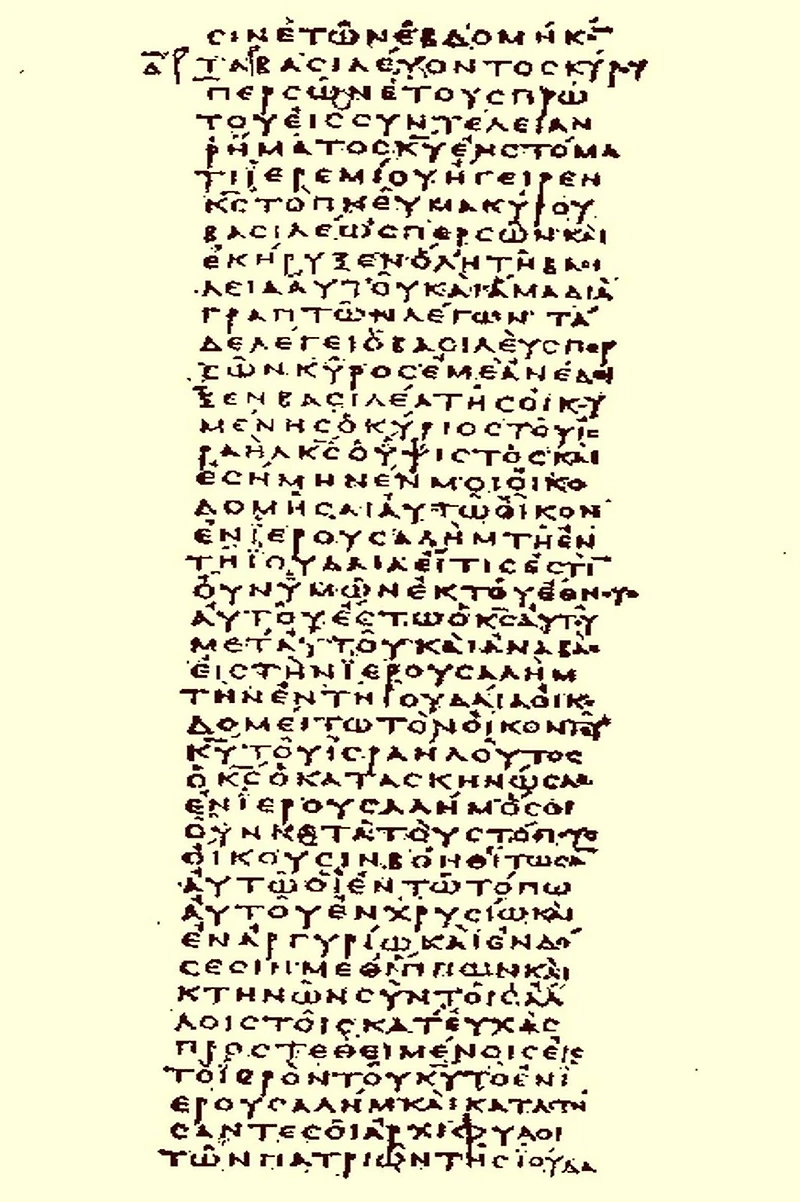 ϹΙΝΕΤΩΝΕΒΔΟΜΗΚΟ̅
ΤΑΒΑϹΙΛΕΥΟΝΤΟϹΚΥΡΟΥ
ΠΕΡϹΩΝΕΤΟΥϹΠΡΩ
ΤΟΥΕΙϹϹΥΝΤΕΛΕΙΑΝ
ΡΗΜΑΤΟϹΚ̅Υ̅ΕΝϹΤΟΜΑ
ΤΙΪΕΡΕΜΙΟΥΗΓΕΙΡΕΝ
Κ̅Ϲ̅ΤΟΠΝΕΥΜΑΚΥΡΟΥ
ΒΑϹΙΛΕΩϹΠΕΡϹΩΝΚΑΙ
ΕΚΗΡΥΞΕΝΟΛΗΤΗΒΑϹΙ
ΛΕΙΑΑΥΤΟΥΚΑΙΑΜΑΔΙΑ
ΓΡΑΠΤΩΝΛΕΓΩΝ ΤΑ
ΔΕΛΕΓΕΙΟΒΑϹΙΛΕΥϹΠΕΡ
ϹΩΝΚΥΡΟϹΕΜΕΑΝΕΔΕΙ
ΞΕΝΒΑϹΙΛΕΑΤΗϹΟΙΚΟΥ
ΜΕΝΗϹΟΚΥΡΙΟϹΤΟΥΙϹ
ΡΑΗΛΚ̅Ϲ̅ΟΥΨΙϹΤΟϹΚΑΙ
ΕϹΗΜΗΝΕΝΜΟΙΟΙΚΟ
ΔΟΜΗϹΑΙΑΥΤΩΟΙΚΟΝ
ΕΝΪΕΡΟΥϹΑΛΗΜΤΗΕΝ
ΤΗΪΟΥΔΑΙΑΕΙΤΙϹΕϹΤΙ̅
ΟΥΝΫΜΩΝΕΚΤΟΥΕΘΝΟΥϹ
ΑΥΤΟΥΕϹΤΩΟΚ̅Ϲ̅ΑΥΤΟΥ
ΜΕΤΑΥΤΟΥΚΑΙΑΝΑΒΑϹ
ΕΙϹΤΗΝΪΕΡΟΥϹΑΛΗΜ
ΤΗΝΕΝΤΗΪΟΥΔΑΙΑΟΙΚΟ
ΔΟΜΕΙΤΩΤΟΝΟΙΚΟΝΤΟΥ
Κ̅Υ̅ΤΟΥΙϹΡΑΗΛΟΥΤΟϹ
ΟΚ̅Ϲ̅ΟΚΑΤΑϹΚΗΝΩϹΑϹ
ΕΝΪΕΡΟΥϹΑΛΗΜΟϹΟΙ
ΟΥΝΚΑΤΑΤΟΥϹΤΟΠΟΥϹ
ΟΙΚΟΥϹΙΝΒΟΗΘΕΙΤΩϹΑ̅
ΑΥΤΩΟΙΕΝΤΩΤΟΠΩ
ΑΥΤΟΥΕΝΧΡΥϹΙΩΚΑΙ
ΕΝΑΡΓΥΡΙΩΚΑΙΕΝΔΟ
ϹΕϹΙΝΜΕΘΙΠΠΩΝΚΑΙ
ΚΤΗΝΩΝϹΥΝΤΟΙϹΑΛ
ΛΟΙϹΤΟΙϹΚΑΤΕΥΧΑϹ
ΠΡΟϹΤΕΘΕΙΜΕΝΟΙϹΕΙϹ
ΤΟΪΕΡΟΝΤΟΥΚ̅Υ̅ΤΟΕΝΪ
ΕΡΟΥϹΑΛΗΜΚΑΙΚΑΤΑϹΤΗ
ϹΑΝΤΕϹΟΙΑΡΧΙΦΥΛΟΙ
ΤΩΝΠΑΤΡΙΩΝΤΗϹΪΟΥΔΑ